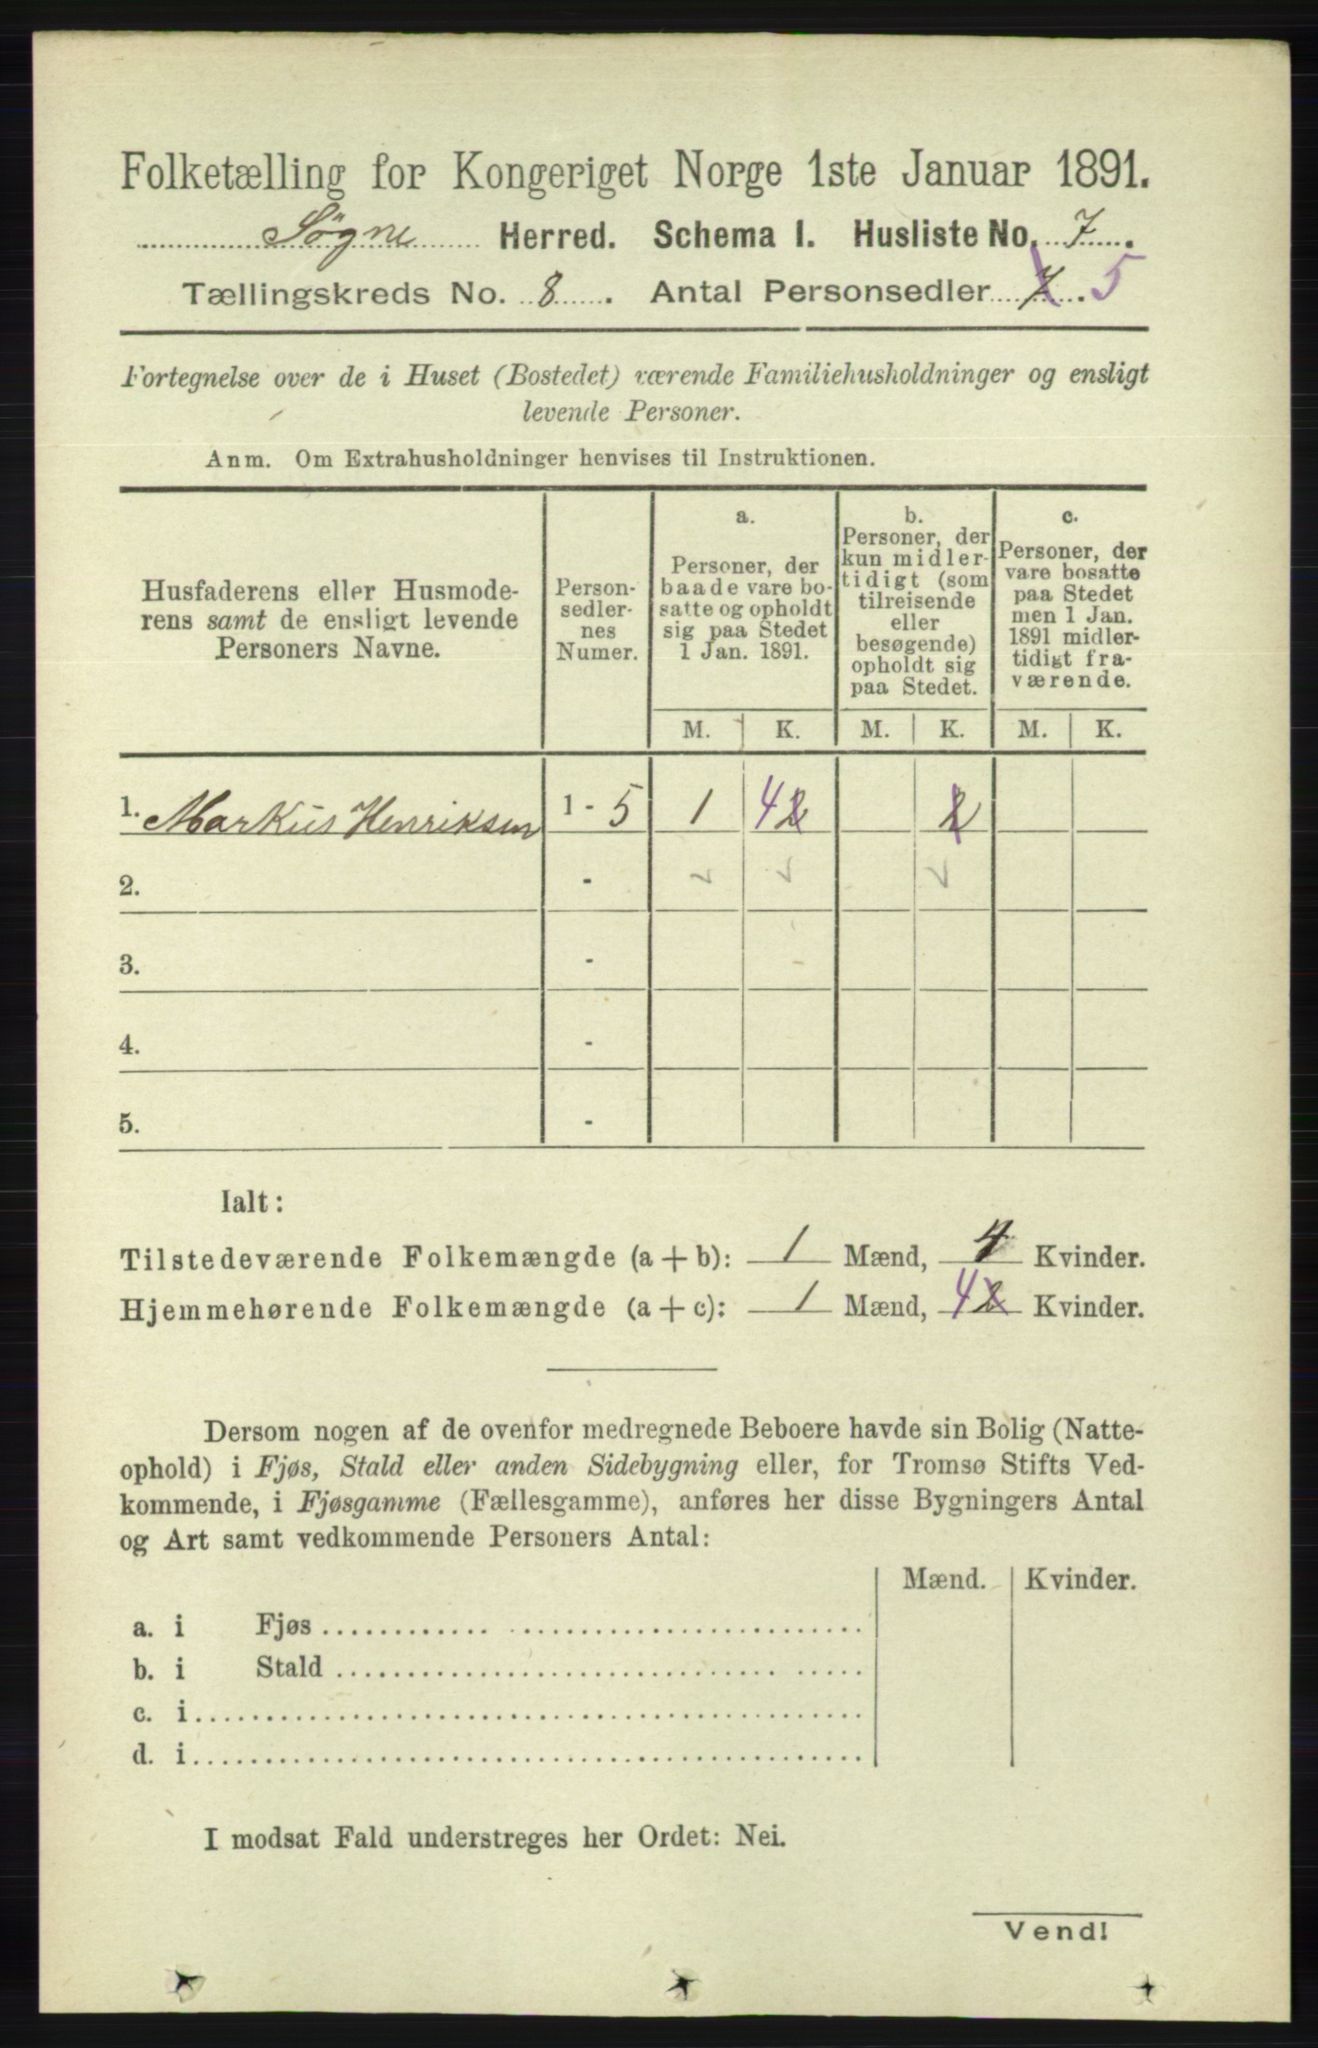 Folketælling for Kongeriget Norge 1ste Januar 1891.
Søgne Herred. Schema I. Husliste No. 7.
Tællingskreds No. 8. Antal Personsedler 7. 5
Fortegnelse over de i Huset (Bostedet) værende Familiehusholdninger og ensligt
levende Personer.
Anm. Om Extrahusholdninger henvises til Instruktionen.
Husfaderens eller Husmode-
rens samt de ensligt levende
Personers Navne.
Person-
sedler-
nes
Numer.
a.
Personer, der
baade vare bo-
satte og opholdt
sig paa Stedet
1 Jan. 1891.
b.
Personer, der
kun midler-
tidigt (som
tilreisende
eller
besøgende)
opholdt sig
paa Stedet.
c.
Personer, der
vare bosatte
paa Stedet
men 1 Jan.
1891 midler-
tidigt fra-
værende.
M. K. M. K. M. K.
1. Markus Henriksen 1 - 5 1 4 2 2
2. -
3. -
4. -
5. -
Ialt:
Tilstedeværende Folkemængde (a + b): 1 Mænd, 4 Kvinder.
Hjemmehørende Folkemængde (a + c): 1 Mænd, 4 2 Kvinder.
Dersom nogen af de ovenfor medregnede Beboere havde sin Bolig (Natte-
ophold) i Fjøs, Stald eller anden Sidebygning eller, for Tromsø Stifts Ved-
kommende, i Fjøsgamme (Fællesgamme), anføres her disse Bygningers Antal
og Art samt vedkommende Personers Antal:
Mænd. Kvinder.
a. i Fjøs
b. i Stald
c. i
d. i
I modsat Fald understreges her Ordet: Nei.
Vend!